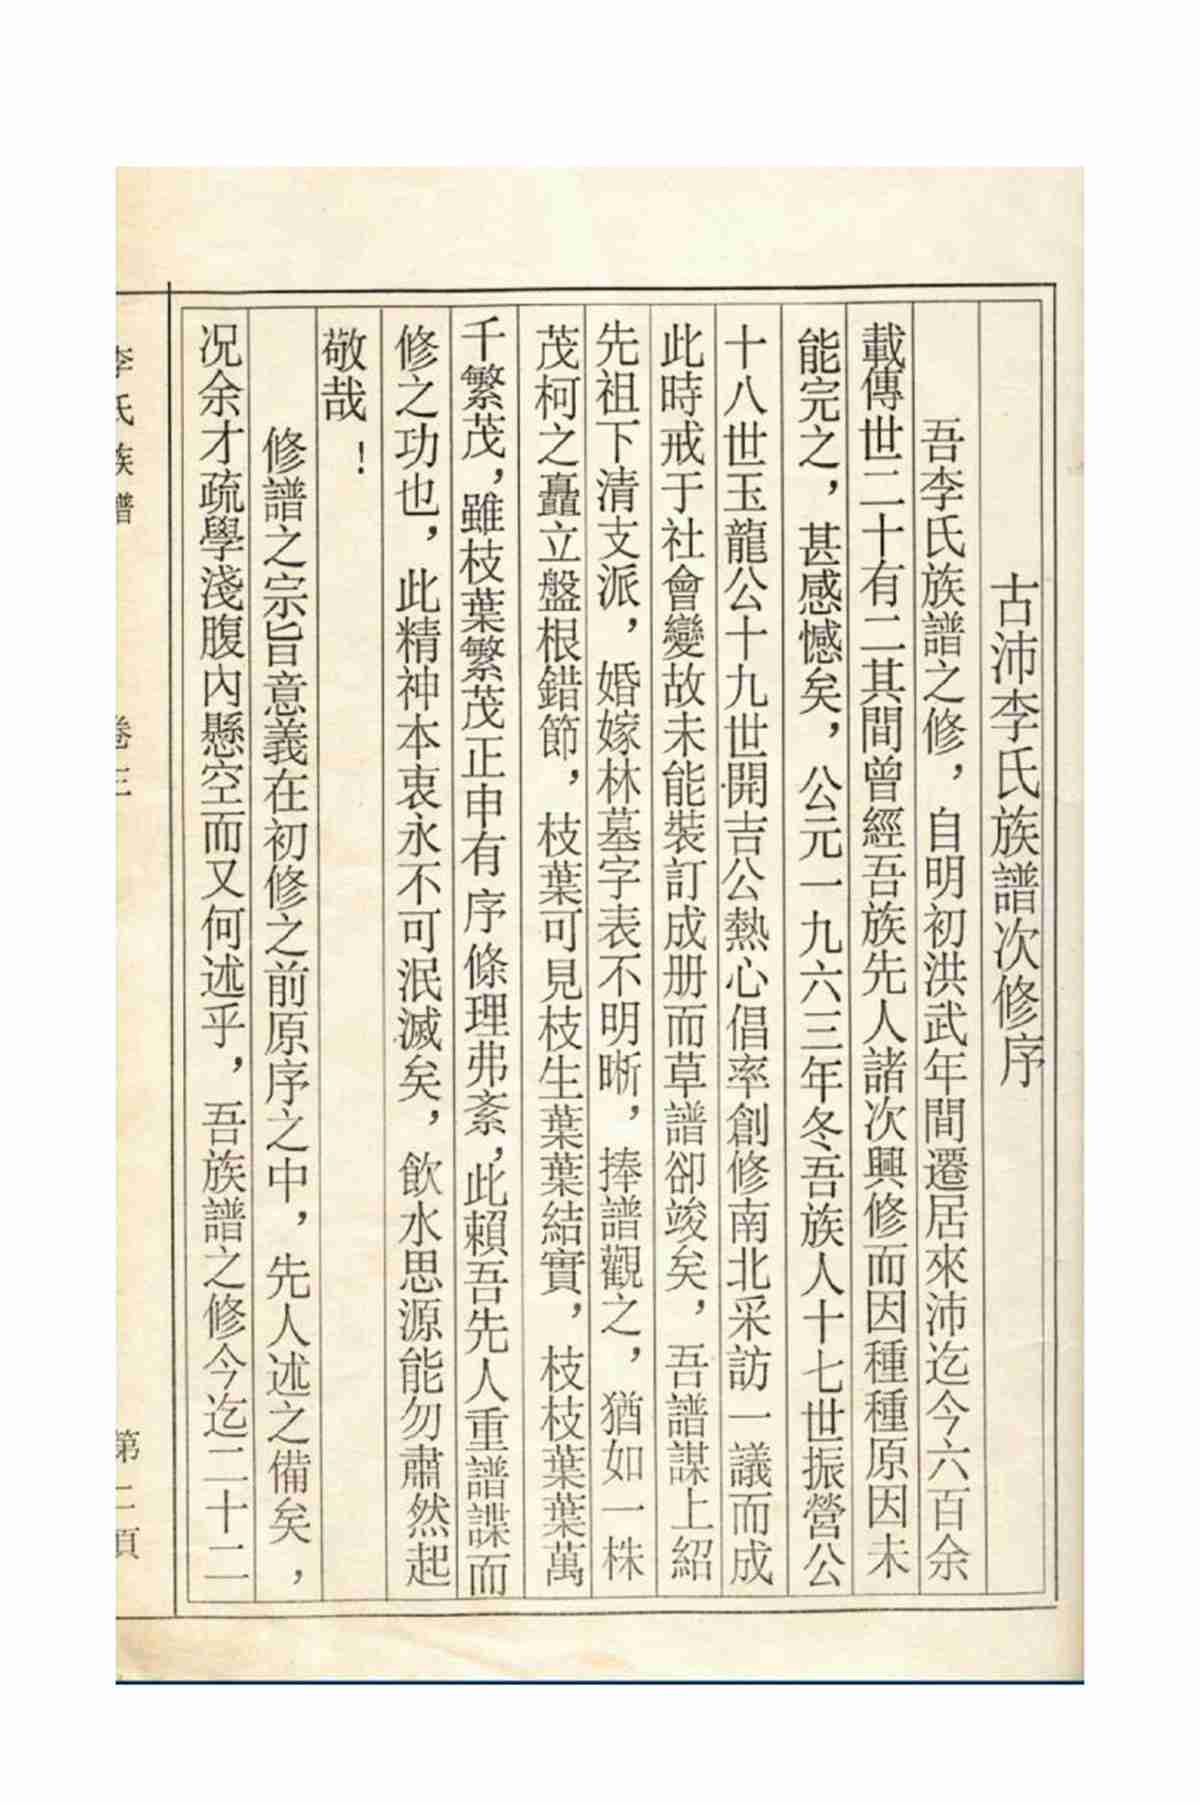 古沛李氏族譜次修序
吾李氏族譜之修，自明初洪武年間遷居來沛迄今六百余
載傳世二十有二其間曾經吾族先人諸次興修而因種種原因未
能完之，甚感憾矣，公元一九六三年冬吾族人十七世振營公
十八世玉龍公十九世開吉公熱心倡率創修南北采訪一議而成
此時戒于社會變故未能裝訂成册而草譜卻竣矣，吾譜謀上紹
先祖下清支派，婚嫁林墓字表不明晰，捧譜觀之，猶如一株
茂柯之矗立盤根錯節，枝葉可見枝生葉葉結實，枝枝葉葉萬
千繁茂，雖枝葉繁茂正申有序條理弗紊，此賴吾先人重譜諜而
修之功也，此精神本衷永不可泯滅矣，飲水思源能勿肅然起
敬哉！
修譜之宗旨意義在初修之前原序之中，先人述之備矣，
况余才疏學淺腹內懸空而又何述乎，吾族譜之修今迄二十二
李氏族譜 卷三 第二頁